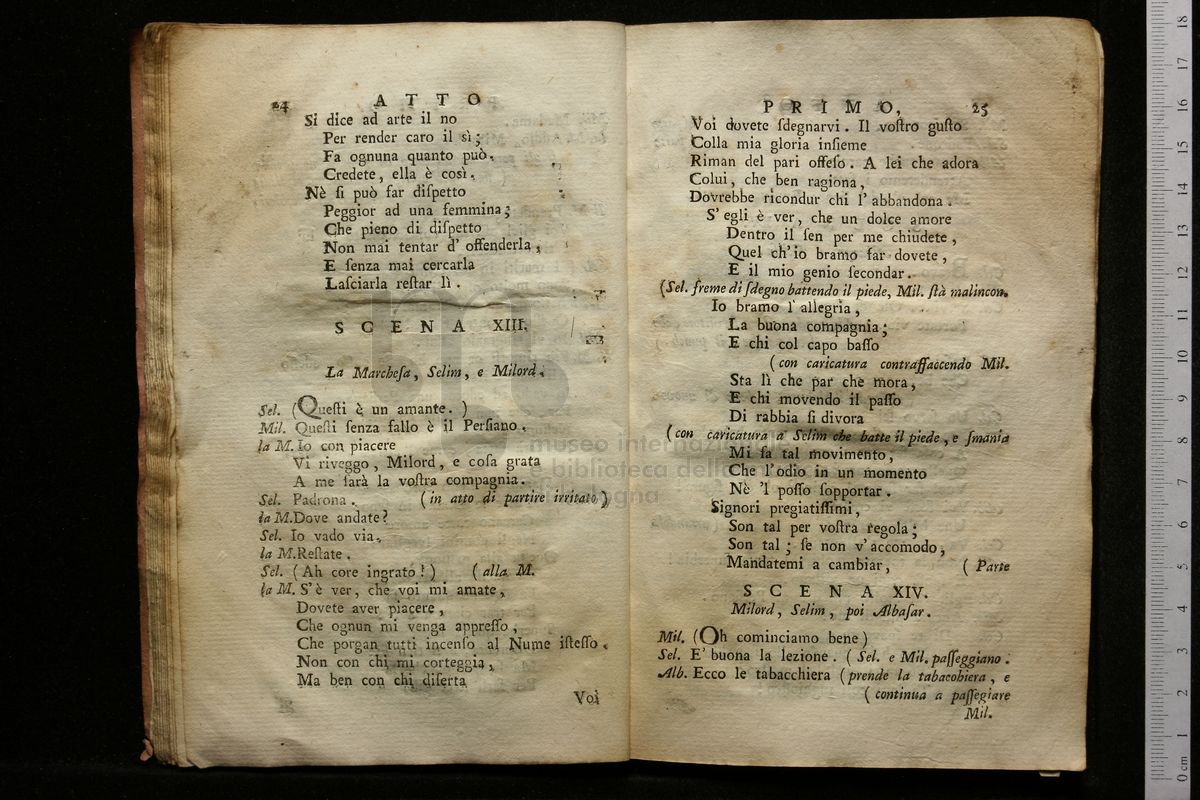 24 ATTO
Si dice ad arte il no
Per render caro il sì;
Fa ognuna quanto può.
Credete, ella è così.
Nè ſi può far diſpetto
Peggior ad una femmina;
Che pieno di diſpetto
Non mai tentar d' offenderla,
E ſenza mai cercarla
Laſciarla reſtar lì.
SCENA XIII.
La Marcheſa, Selim, e Milord.
Sel. (Queſti è un amante. )
Mil. Queſti ſenza fallo è il Perſiano.
la M. Io con piacere
Vi riveggo, Milord, e coſa grata
A me ſarà la voſtra compagnia.
Sel. Padrona. (in atto di partire irritato)
la M. Dove andate?
Sel. Io vado via.
la M. Reſtate.
Sel. (Ah core ingrato!) (alla M.
la M. S' è ver, che voi mi amate,
Dovete aver piacere,
Che ognun mi venga appreſſo,
Che porgan tutti incenſo al Nume iſteſſo.
Non con chi mi corteggia,
Ma ben con chi diſerta
Voi
PRIMO, 25
Voi dovete ſdegnarvi. Il voſtro guſto
Colla mia gloria inſieme
Riman del pari offeſo. A lei che adora
Colui, che ben ragiona,
Dovrebbe ricondur chi l' abbandona.
S' egli è ver, che un dolce amore
Dentro il ſen per me chiudete,
Quel ch' io bramo far dovete,
E il mio genio ſecondar.
(Sel. freme di ſdegno battendo il piede, Mil. ſtà malincon.
Io bramo l' allegria,
La buona compagnia;
E chi col capo baſſo
(con caricatura contraffaccendo Mil.
Sta lì che par che mora,
E chi movendo il paſſo
Di rabbia ſi divora
(con caricatura a Selim che batte il piede, e ſmania
Mi fa tal movimento,
Che l' odio in un momento
Nè 'l poſſo ſopportar.
Signori pregiatiſſimi,
Son tal per voſtra regola;
Son tal; ſe non v' accomodo,
Mandatemi a cambiar, (Parte
SCENA XIV.
Milord, Selim, poi Albaſar.
Mil. (Oh cominciamo bene)
Sel. E' buona la lezione. (Sel. e Mil. paſſeggiano.
Alb. Ecco le tabacchiera (prende la tabacohiera, e
(continua a paſſegiare
Mil.
museo internazionale
e biblioteca della
0 cm 1 2 3 4 5 6 7 8 9 10 11 12 13 14 15 16 17 18